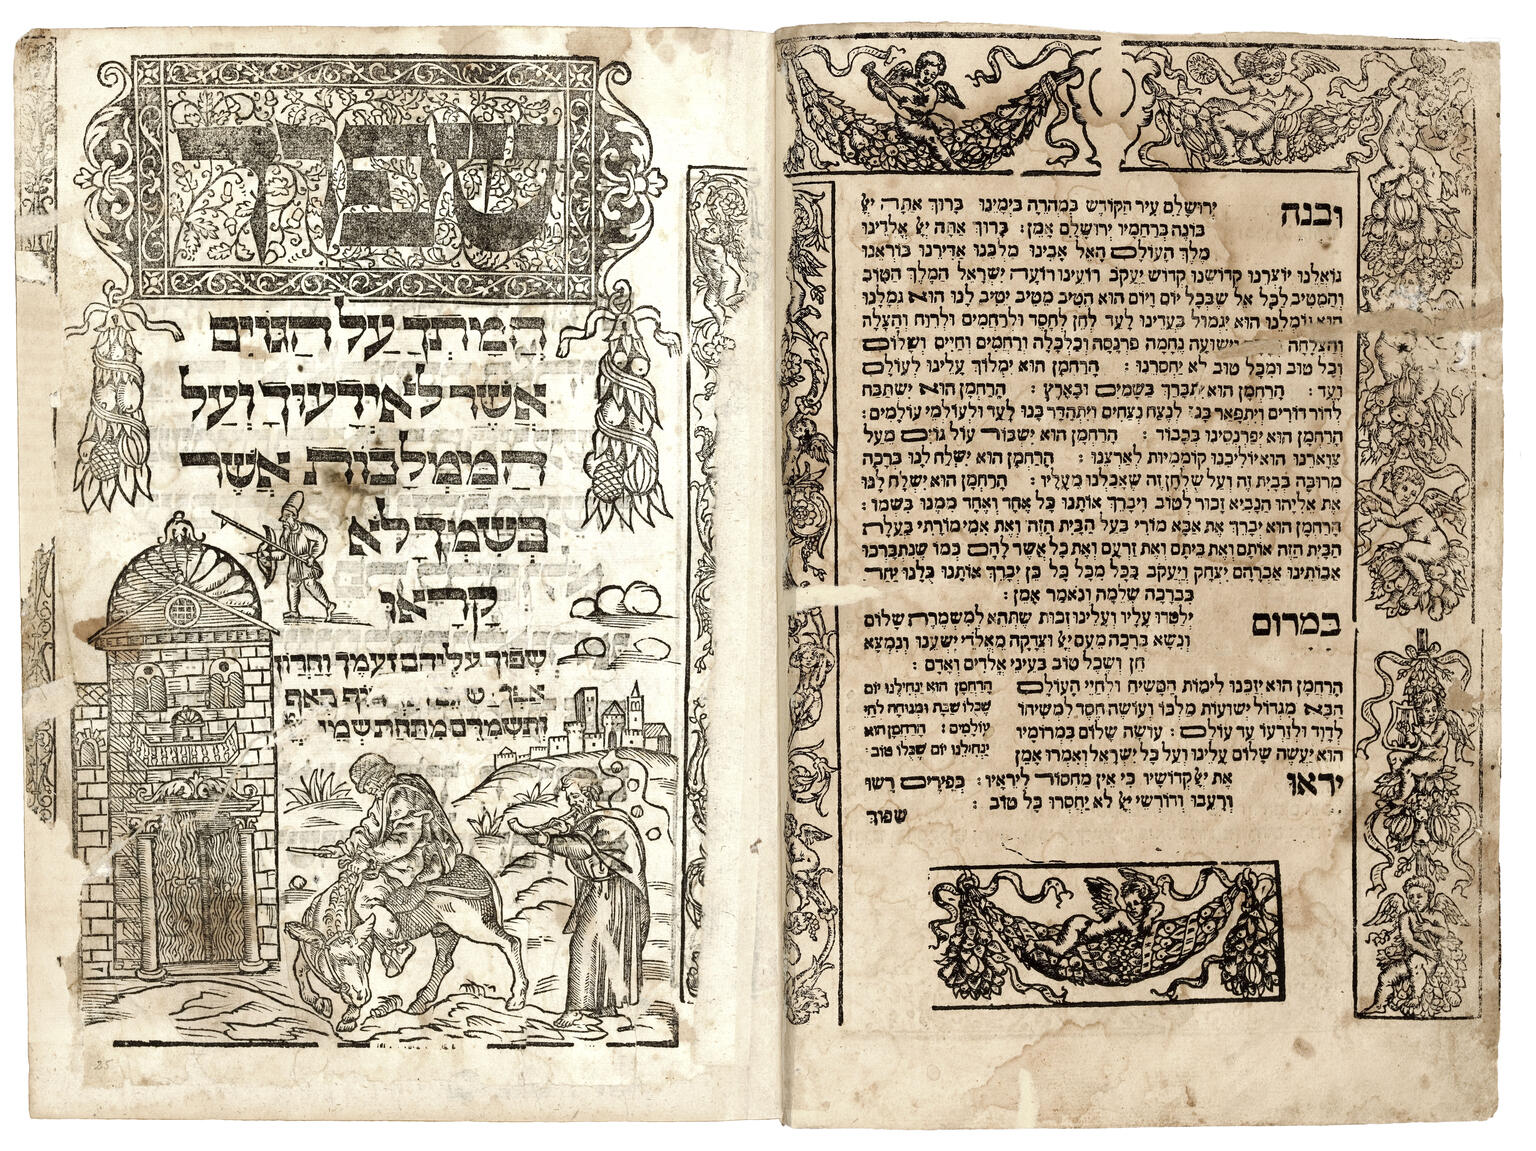 ובנה ירושלם עיר הקודש במהרה בימינו ברוך אתה יי
בונה ברחמיו ירושלם אמן: ברוך אתה יי אלדינו
מלך העולם האל אבינו מלכנו אדירנו בוראנו
גואלנו יוצרנו קדושנו קדוש יעקב רוענו רועה ישראל המלך הטוב
והמטיב לכל אל שבכל יום ויום הוא הטיב מטיב יטיב לנו הוא גמלנו
הוא גומלנו הוא יגמול בעדינו לעד לחן לחסד ולרחמים ולרוח והצלה
והצלחה וישועה נחמה פרנסה וכלכלה ורחמים וחיים ושלום
וכל טוב ומכל טוב לא יחסרנו: הרחמן הוא ימלוך עלינו לעולם
ועד: הרחמן הוא יתברך בשמים ובארץ: הרחמן הוא ישתבח
לדור דורים ויתפאר בנו לנצח נצחים ויתהדר בנו לעד ולעולמי עולמים:
הרחמן הוא יפרנסינו בכבוד: הרחמן הוא ישבור עול גוים מעל
צוארנו הוא יוליכנו קוממיות לארצנו: הרחמן הוא ישלח לנו ברכה
מרובה בבית זה ועל שלחן זה שאכלנו מעליו: הרחמן הוא ישלח לנו
את אליהו הנביא זכור לטוב ויברך אותנו כל אחד ואחד ממנו בשמו:
הרחמן הוא יברך את אבא מורי בעל הבית הזה ואת אמי מורתי בעלה
הבית הזה אותם ואת ביתם ואת זרעם ואת כל אשר להם כמו שנתברכו
אבותינו אברהם יצחק ויעקב בכל מכל כל כן יברך אותנו כלנו יחד
בברכה שלמה ונאמר אמן:
במרום ילמדו עליו ועלינו זכות שתהא למשמרה שלום
ונשא ברכה מעם יי וצדקה מאלדי ישענו ונמצא
חן ושכל טוב בעיני אלדים ואדם:
הרחמן הוא יזכנו לימות המשיח ולחיי העולם
הבא מגדול ישועות מלכו ועושה חסד למשיחו
לדוד ולזרעו עד עולם: עושה שלום במרומיו
הוא יעשה שלום עלינו ועל כל ישראל ואמרו אמן
הרחמן הוא ינחילנו יום
שכלו שבת ומנוחה לחיי
עולמים: הרחמן הוא
ינחילנו יום שכלו טוב:
יראו את יי קדושיו כי אין מחסור ליראיו: כפירים רשו
ורעבו ודורשי יי לא יחסרו כל טוב:
שפוך
שפך
חמתך על הגוים
אשר לא ידעוך ועל
הממלכות אשר
בשמך לא
קראו
שפוך עליהם זעמך וחרון
אף
ותשמדם מתחת שמי
25